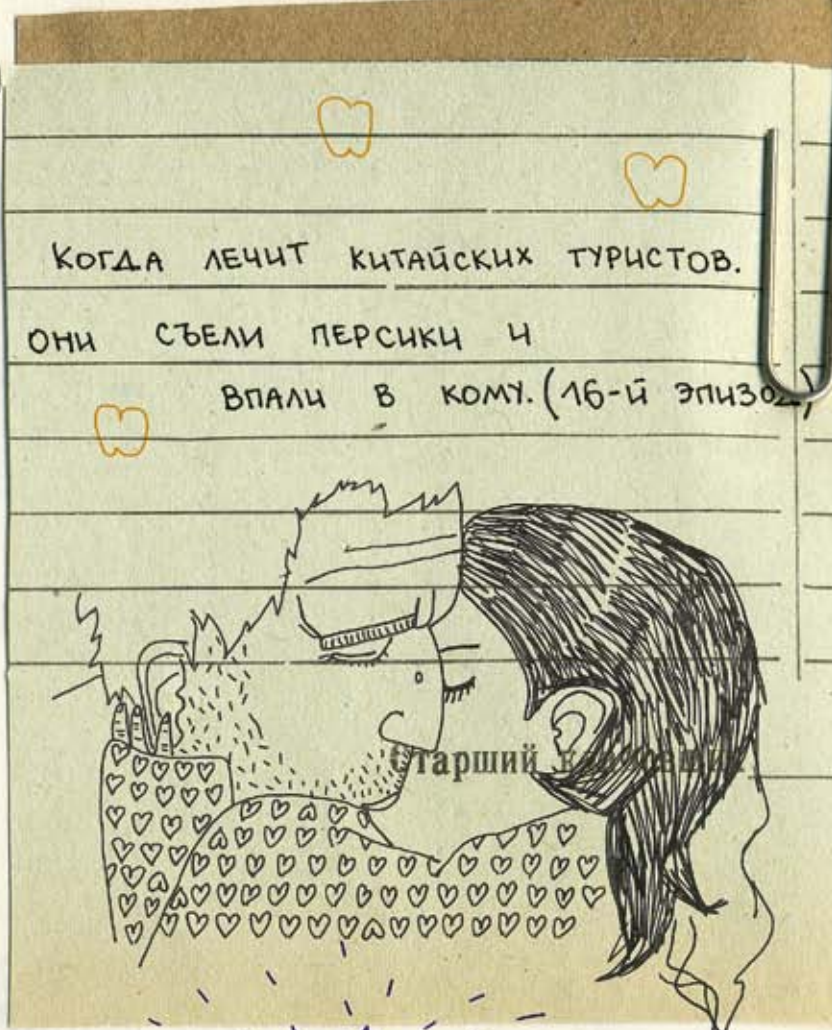 КОГДА ЛЕЧИТ КИТАЙСКИХ ТУРИСТОВ.
ОНИ СЪЕЛИ ПЕРСИКИ И
ВПАЛИ В КОМУ. (16-Й ЭПИЗОД)
Старший